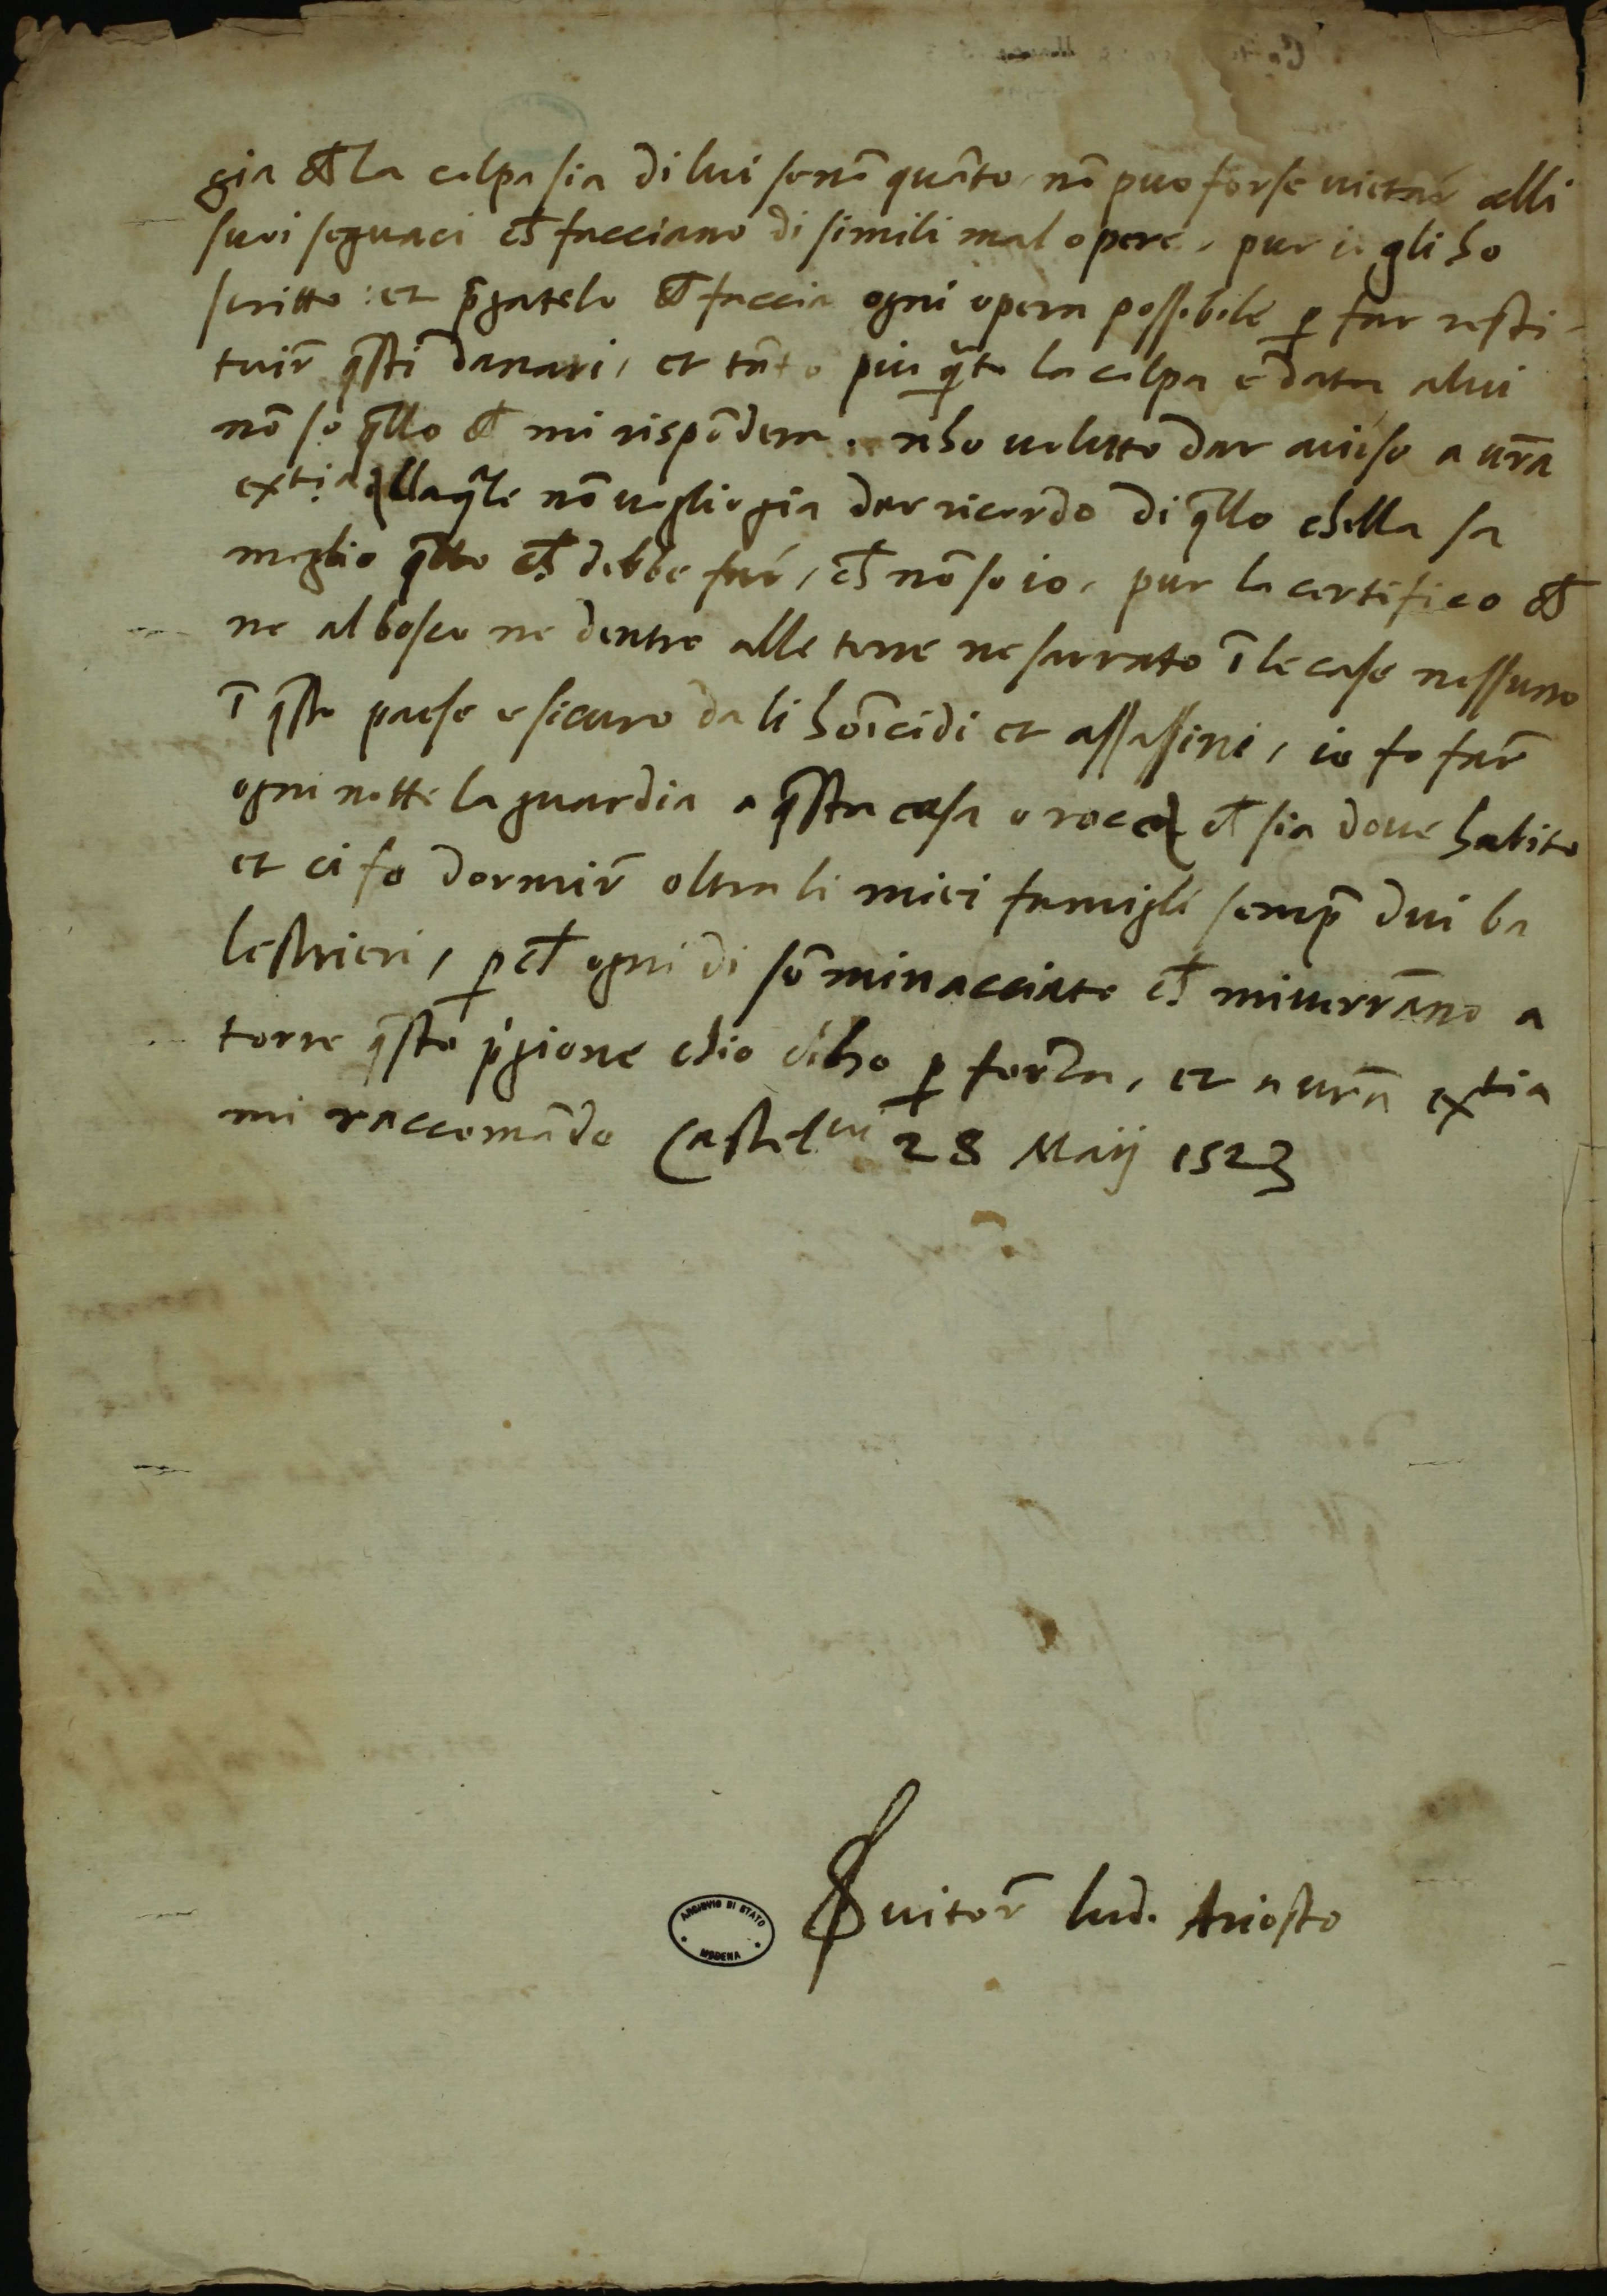 gia ch̄ la colpa sia di lui se nō quāto nō puo forse uietar̄ alli
suoi seguaci ch̄ facciano di simili mal opere, pur io gli ho
scritto: et p̄gatelo ch̄ faccia ogni opera possibile ꝑ far resti-
tuir̄ q̄sti danari, et tāto piu q̄to la colpa e data a lui
nō so q̄llo ch̄ mi rispōdera. nho uoluto dar auiso a urā
extia alla q̄le nō uoglio gia dar ricordo di q̄llo chella sa
meglio q̄llo ch̄ debbe far̄, ch̄ nō so io, pur la certifico ch̄
ne al bosco ne dentro alle terre ne serrato ī le case nessuno
ī q̄sto paese e sicuro da li hōicidi et assassini, io fo far̄
ogni notte la guardia a q̄sta casa o rocca ch̄ sia doue habito
et ci fo dormir̄ oltra li miei famigli semp̄ dui ba
lestrieri, ꝑ ch̄ ogni di sō minacciato ch̄ mi uerrāno a
torre q̄sto p̄gione chio ci ho ꝑ forza, et a urā extia
mi raccomādo Castelni 28 Maij 1523
Suitor̄ Lud. Ariosto
ARCHIVIO DI STATO
MODENA